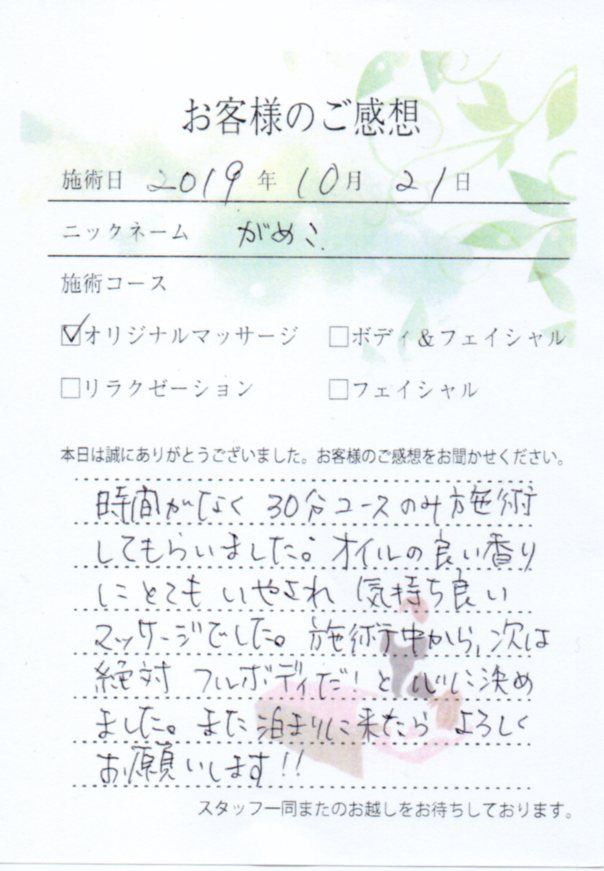 お客様のご感想
施術日 2019年 10月 21日
ニックネーム がめこ
施術コース
☑オリジナルマッサージ □ボディ&フェイシャル
□リラクゼーション □フェイシャル
本日は誠にありがとうございました。お客様のご感想をお聞かせください。
時間がなく 30分コースのみ施術
してもらいました。オイルの良い香り
にとても いやされ 気持ち良い
マッサージでした。施術中から、次は
絶対 フルボディだ!と 心に決め
ました。また泊まりに来たら よろしく
お願いします!!
スタッフ一同またのお越しをお待ちしております。